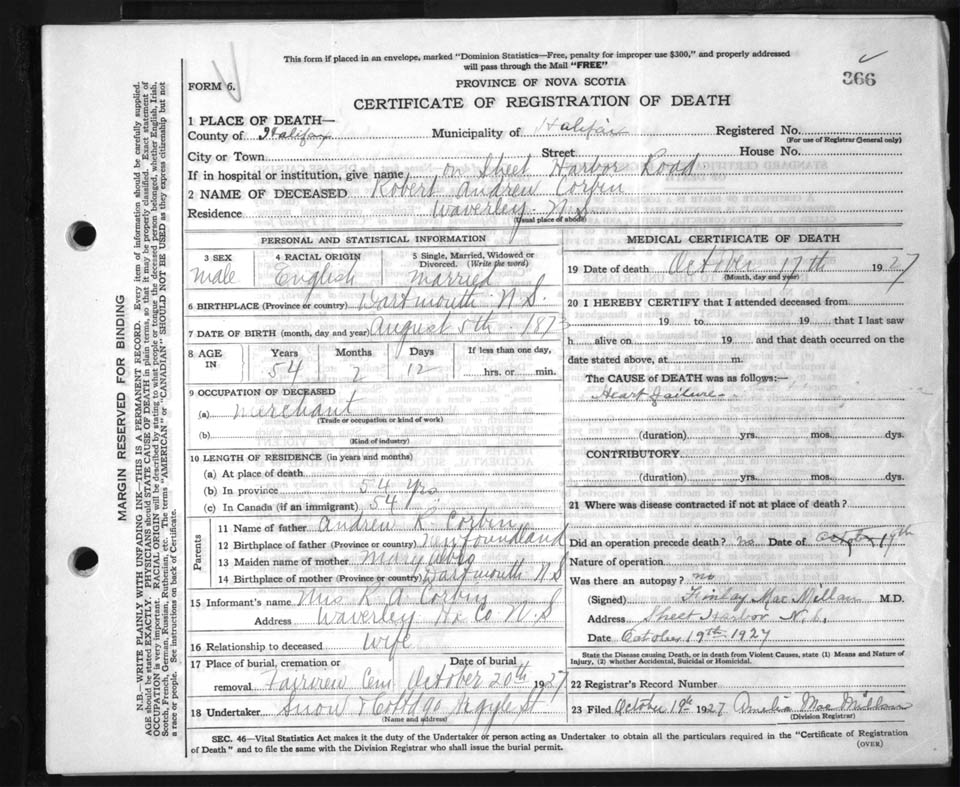 This form if placed in an envelope, marked "Dominion Statistics—Free, penalty for improper use $300," and properly addressed
will pass through the Mail "FREE"
366
FORM 6.
PROVINCE OF NOVA SCOTIA
CERTIFICATE OF REGISTRATION OF DEATH
1 PLACE OF DEATH—
County of Halifax Municipality of Halifax Registered No.
(For use of Registrar General only)
City or Town Street House No.
If in hospital or institution, give name on Sheet Harbor Road
2 NAME OF DECEASED Robert Andrew Corbin
Residence Waverley N S
(Usual place of abode)
PERSONAL AND STATISTICAL INFORMATION
3 SEX 4 RACIAL ORIGIN 5 Single, Married, Widowed or Divorced. (Write the word)
Male English Married
6 BIRTHPLACE (Province or country) Dartmouth N S.
7 DATE OF BIRTH (month, day and year) August 5th 1873
8 AGE Years Months Days If less than one day,
54 2 12 hrs. or min.
9 OCCUPATION OF DECEASED
(a) Merchant
(Trade or occupation or kind of work)
(b)
(Kind of industry)
10 LENGTH OF RESIDENCE (in years and months)
(a) At place of death
(b) In province 54 yrs.
(c) In Canada (if an immigrant) 54
Parents
11 Name of father Andrew R Corbin
12 Birthplace of father (Province or country) Newfoundland
13 Maiden name of mother Mary
14 Birthplace of mother (Province or country) Dartmouth N S
15 Informant's name Mrs R A Corbin
Address Waverley Hx Co N S
16 Relationship to deceased Wife
17 Place of burial, cremation or removal Date of burial
Fairview Cem October 20th 1927
18 Undertaker Snow & Co Argyle St
(Name and address)
MEDICAL CERTIFICATE OF DEATH
19 Date of death October 17th 1927
(Month, day and year)
20 I HEREBY CERTIFY that I attended deceased from
19 to 19 that I last saw
h alive on 19 and that death occurred on the
date stated above, at m.
The CAUSE OF DEATH was as follows:—
Heart Failure
(duration) yrs. mos. dys.
CONTRIBUTORY
(duration) yrs. mos. dys.
21 Where was disease contracted if not at place of death?
Did an operation precede death? no Date of October 19th
Nature of operation
Was there an autopsy? no
(Signed) Finlay MacMillan M.D.
Address Sheet Harbor N.S.
Date October 19th 1927
State the Disease causing Death, or in death from Violent Causes, state (1) Means and Nature of
Injury, (2) whether Accidental, Suicidal or Homicidal.
22 Registrar's Record Number
23 Filed October 19th 1927 Amelia MacMillan
(Division Registrar)
SEC. 46—Vital Statistics Act makes it the duty of the Undertaker or person acting as Undertaker to obtain all the particulars required in the "Certificate of Registration
of Death" and to file the same with the Division Registrar who shall issue the burial permit.
(OVER)
MARGIN RESERVED FOR BINDING
N.B.—WRITE PLAINLY WITH UNFADING INK—THIS IS A PERMANENT RECORD. Every item of information should be carefully supplied.
AGE should be stated EXACTLY. PHYSICIANS should STATE CAUSE OF DEATH in plain terms, so that it may be properly classified. Exact statement of
OCCUPATION is very important. RACIAL ORIGIN will be described by stating to what people or tongue the deceased person belonged, whether English, Irish,
Scotch, French, German, Russian, Ruthenian, etc. The terms "AMERICAN" or "CANADIAN" SHOULD NOT BE USED as they express citizenship but not
a race or people. See instructions on back of Certificate.